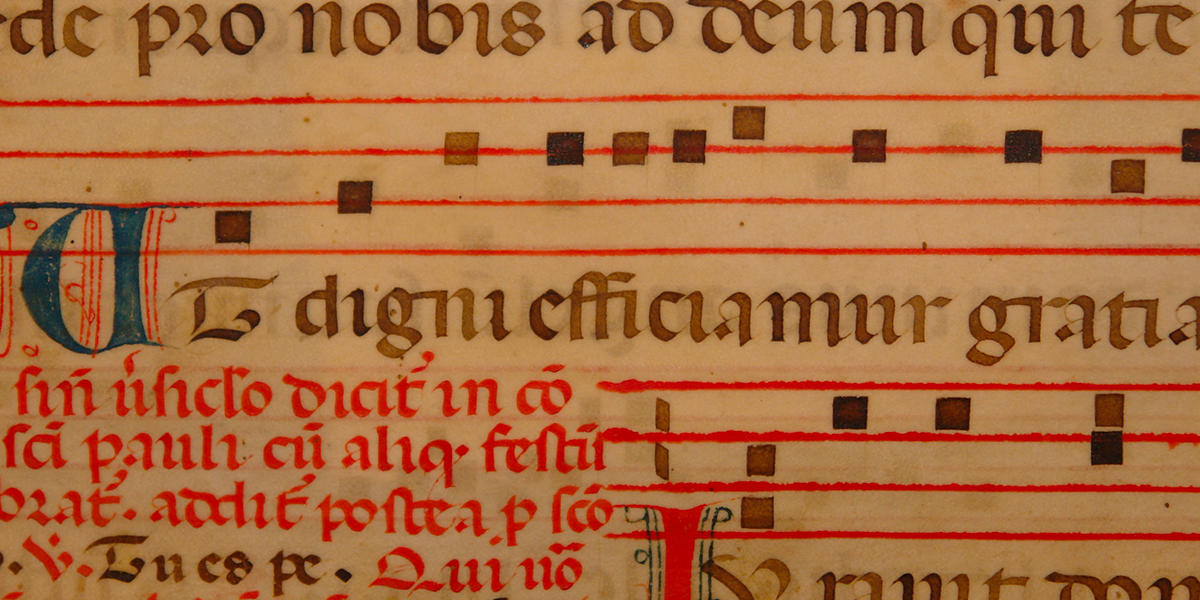 de pro nobis ad deum qui te
Ut digni efficiamur gratia
sin̄ v̓siclo dicit᷑ in cō
sc̄i pauli cū aliq᷒ festū
orat᷑. addit᷑ postea p scō
V̓. Tu es pe. Qui nō
Iuravit dom